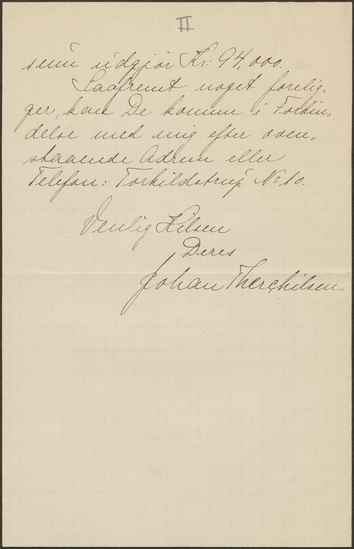 II
som udgjör Kr. 94,000.
Saafremt noget forelig-
ger, kan De komme i Forbin-
delse med mig efter oven-
staaende Adresse eller
Telefon: Torkildstrup No 10.
Venlig Hilsen
Deres
Johan Therchilsen